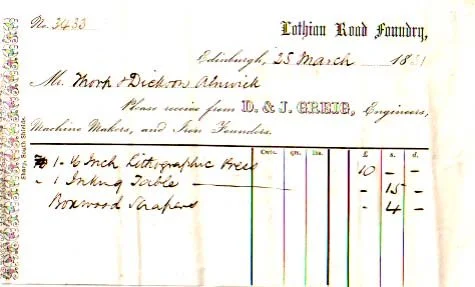 No. 3433
Lothian Road Foundry,
Edinburgh, 25 March 18
Mr. Thorp & Dickson Alnwick
Please receive from D. & J. GREIG, Engineers,
Machine Makers, and Iron Founders.
Cwts. Qrs. lbs. £ s. d.
1 - 16 Inch Lithographic Press 10 - -
- 1 Inking Table - 15 -
Boxwood Scrapers - 4 -
Sharp, South Shields.